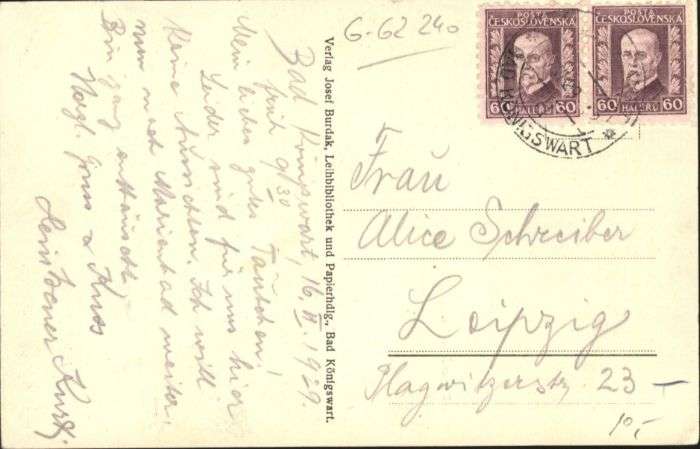 Bad Königswart, 16. II. 1929.
früh 9/30
Mein liebes gutes
Leider sind für uns hier
keine Aussichten. Ich will
nun nach Marienbad weiter.
Bin ganz enttäuscht.
Herzl. Gruss u. Kuss
Kurt.
Verlag Josef Burdak, Leihbibliothek und Papierhdlg., Bad Königswart.
G-62 240
POŠTA
ČESKOSLOVENSKÁ
60 HALÉŘŮ 60
POŠTA
ČESKOSLOVENSKÁ
60 HALÉŘŮ 60
BAD KÖNIGSWART
Frau
Alice Schreiber
Leipzig
Plagwitzerstr 23 —
10,-